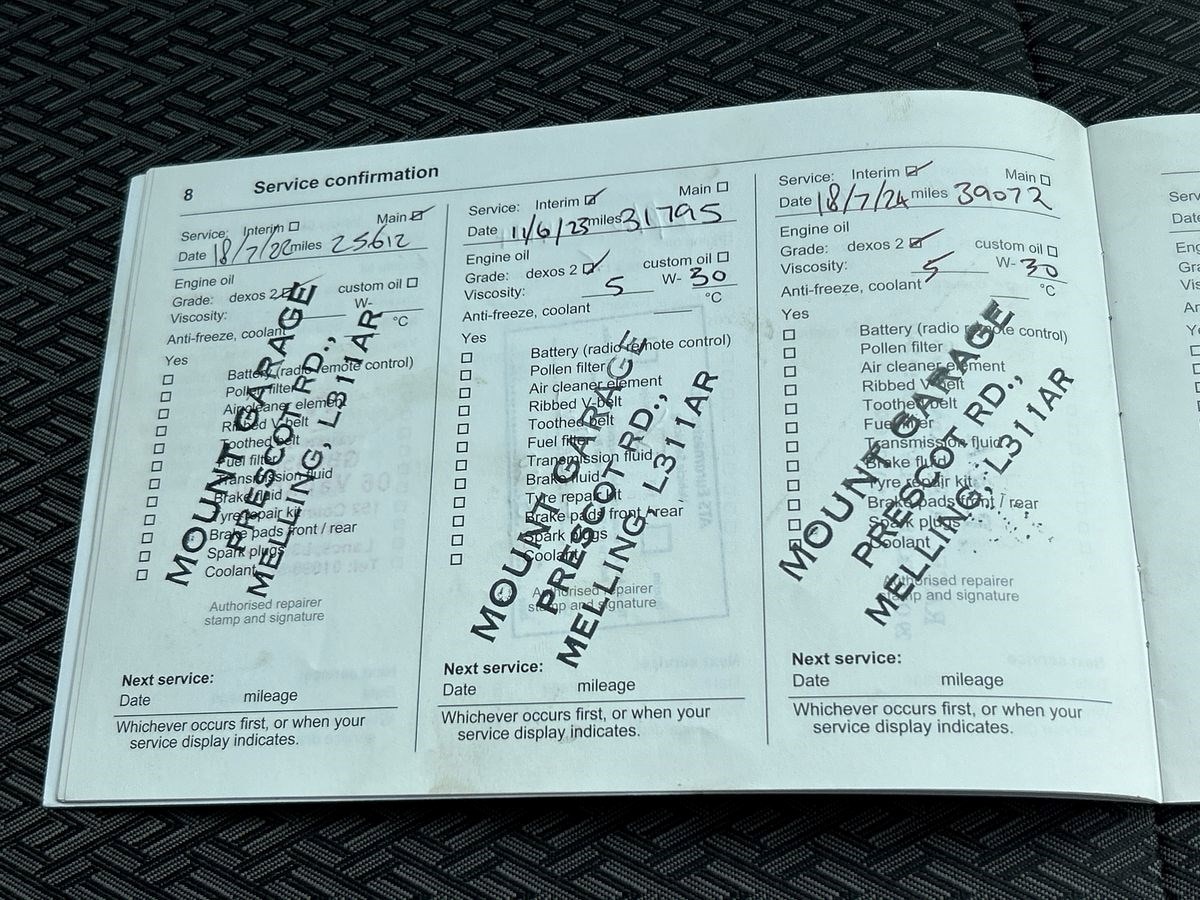 8 Service confirmation
Service: Interim ☐ Main ☑
Date 18/7/22 miles 25612
Engine oil
Grade: dexos 2 ☑ custom oil ☐
Viscosity: W-
Anti-freeze, coolant °C
Yes
☐ Battery (radio remote control)
☐ Pollen filter
☐ Air cleaner element
☐ Ribbed V-belt
☐ Toothed belt
☐ Fuel filter
☐ Transmission fluid
☐ Brake fluid
☐ Tyre repair kit
☐ Brake pads front / rear
☐ Spark plugs
☐ Coolant
MOUNT GARAGE
PRESCOT RD.,
MELLING, L31 1AR
Authorised repairer
stamp and signature
Next service:
Date mileage
Whichever occurs first, or when your
service display indicates.
Service: Interim ☑ Main ☐
Date 11/6/23 miles 31795
Engine oil
Grade: dexos 2 ☑ custom oil ☐
Viscosity: 5 W- 30
Anti-freeze, coolant °C
Yes
☐ Battery (radio remote control)
☐ Pollen filter
☐ Air cleaner element
☐ Ribbed V-belt
☐ Toothed belt
☐ Fuel filter
☐ Transmission fluid
☐ Brake fluid
☐ Tyre repair kit
☐ Brake pads front / rear
☐ Spark plugs
☐ Coolant
MOUNT GARAGE
PRESCOT RD.,
MELLING, L31 1AR
Authorised repairer
stamp and signature
Next service:
Date mileage
Whichever occurs first, or when your
service display indicates.
Service: Interim ☑ Main ☐
Date 18/7/24 miles 39072
Engine oil
Grade: dexos 2 ☑ custom oil ☐
Viscosity: 5 W- 30
Anti-freeze, coolant °C
Yes
☐ Battery (radio remote control)
☐ Pollen filter
☐ Air cleaner element
☐ Ribbed V-belt
☐ Toothed belt
☐ Fuel filter
☐ Transmission fluid
☐ Brake fluid
☐ Tyre repair kit
☐ Brake pads front / rear
☐ Spark plugs
☐ Coolant
MOUNT GARAGE
PRESCOT RD.,
MELLING, L31 1AR
Authorised repairer
stamp and signature
Next service:
Date mileage
Whichever occurs first, or when your
service display indicates.